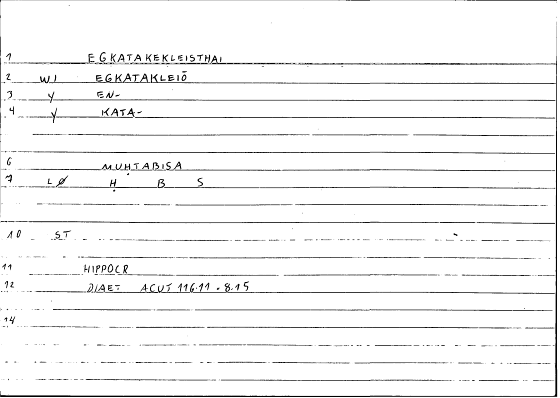 1 EGKATAKEKLEISTHAI
2 WI EGKATAKLEIŌ
3 Y EN-
4 Y KATA-
6 MUḤTABISA
7 LØ Ḥ B S
10 ST -
11 HIPPOCR
12 DIAET ACUT 116.11 - 8.15
14